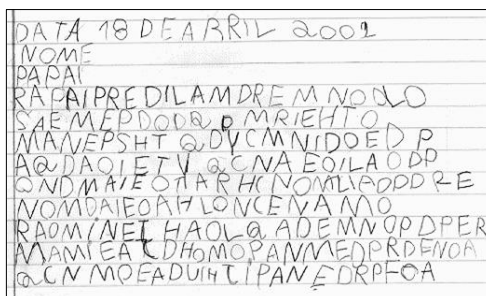 DATA 18 DE ABRIL 2001
NOME
PAPAI
RAPAIPREDILAMDREMNODLO
SAEMEPDODQPMRIEHTO
MANEPSHTQDYCMNIDOEDP
AQDAOIETVQCNAEOILAODP
QNDMAIEOTARHCNOMLIAOPDRE
NOMDAIEOAHLONCENAMO
RAOMINETHAOLQADEMNOPDPER
MAMIEATDHOMOPANMEDPRDENOA
QCNMOEADUIHTIPANEDRPEOA